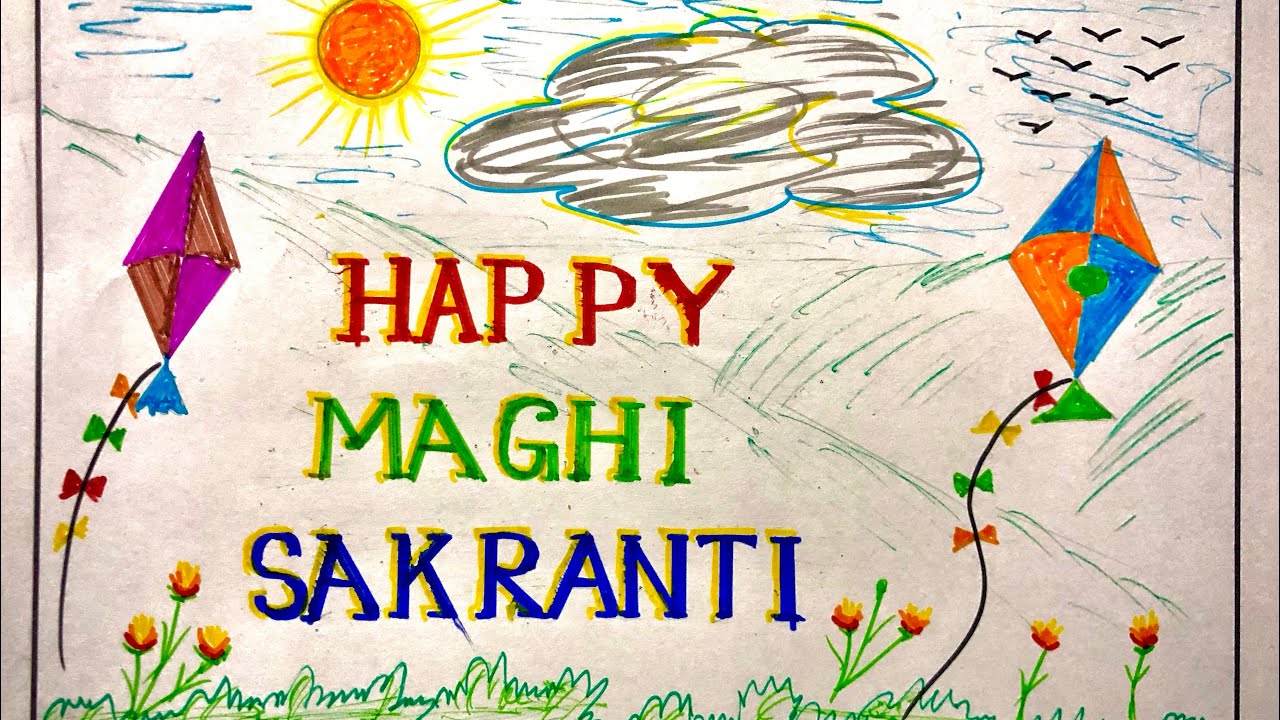 HAPPY
MAGHI
SAKRANTI